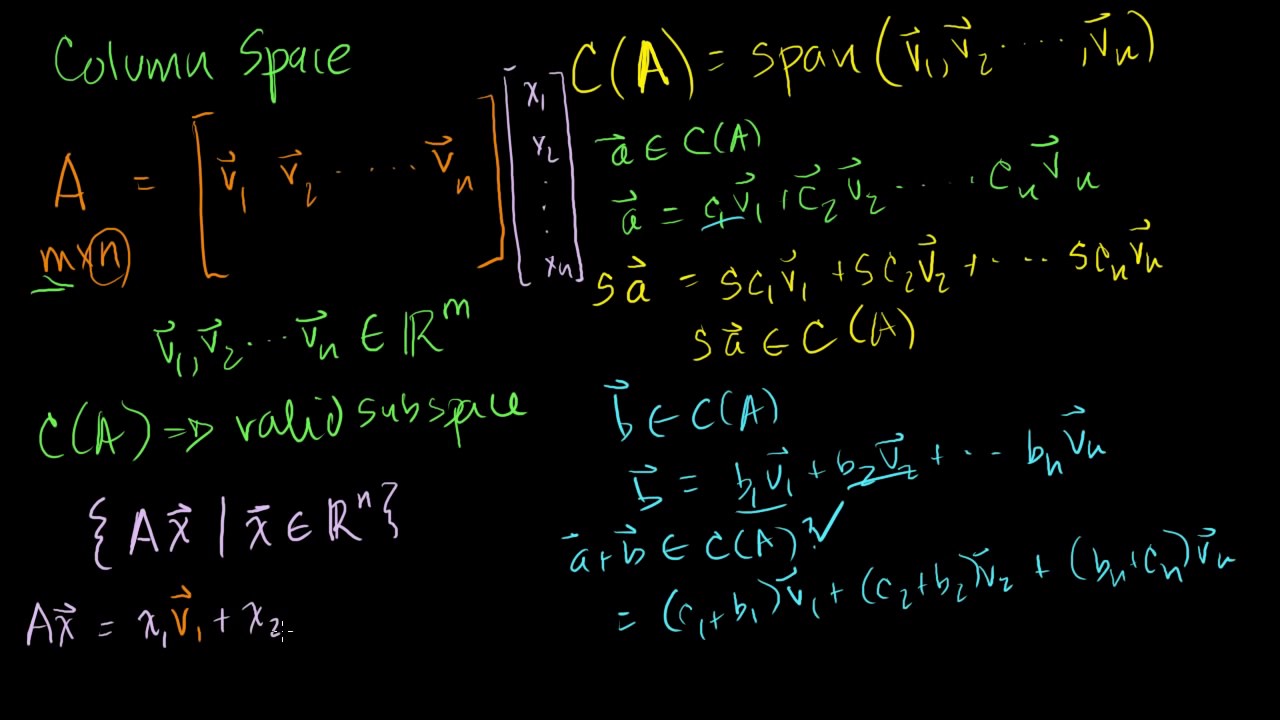 Column Space
A = [v⃗₁ v⃗₂ ..... v⃗ₙ] [x₁ x₂ ⋮ xₙ]
m×n
v⃗₁, v⃗₂ ... v⃗ₙ ∈ ℝᵐ
C(A) ⇒ valid subspace
{Ax⃗ | x⃗ ∈ ℝⁿ}
Ax⃗ = x₁v⃗₁ + x₂
C(A) = span(v⃗₁, v⃗₂ ....., v⃗ₙ)
a⃗ ∈ C(A)
a⃗ = c₁v⃗₁ + c⃗₂v⃗₂ ..... cₙv⃗ₙ
sa⃗ = sc₁v⃗₁ + sc₂v⃗₂ + ... scₙv⃗ₙ
sa⃗ ∈ C(A)
b⃗ ∈ C(A)
b⃗ = b₁v⃗₁ + b₂v⃗₂ + ... bₙv⃗ₙ
a⃗+b⃗ ∈ C(A)? ✓
= (c₁+b₁)v⃗₁ + (c₂+b₂)v⃗₂ + (bₙ+cₙ)v⃗ₙ